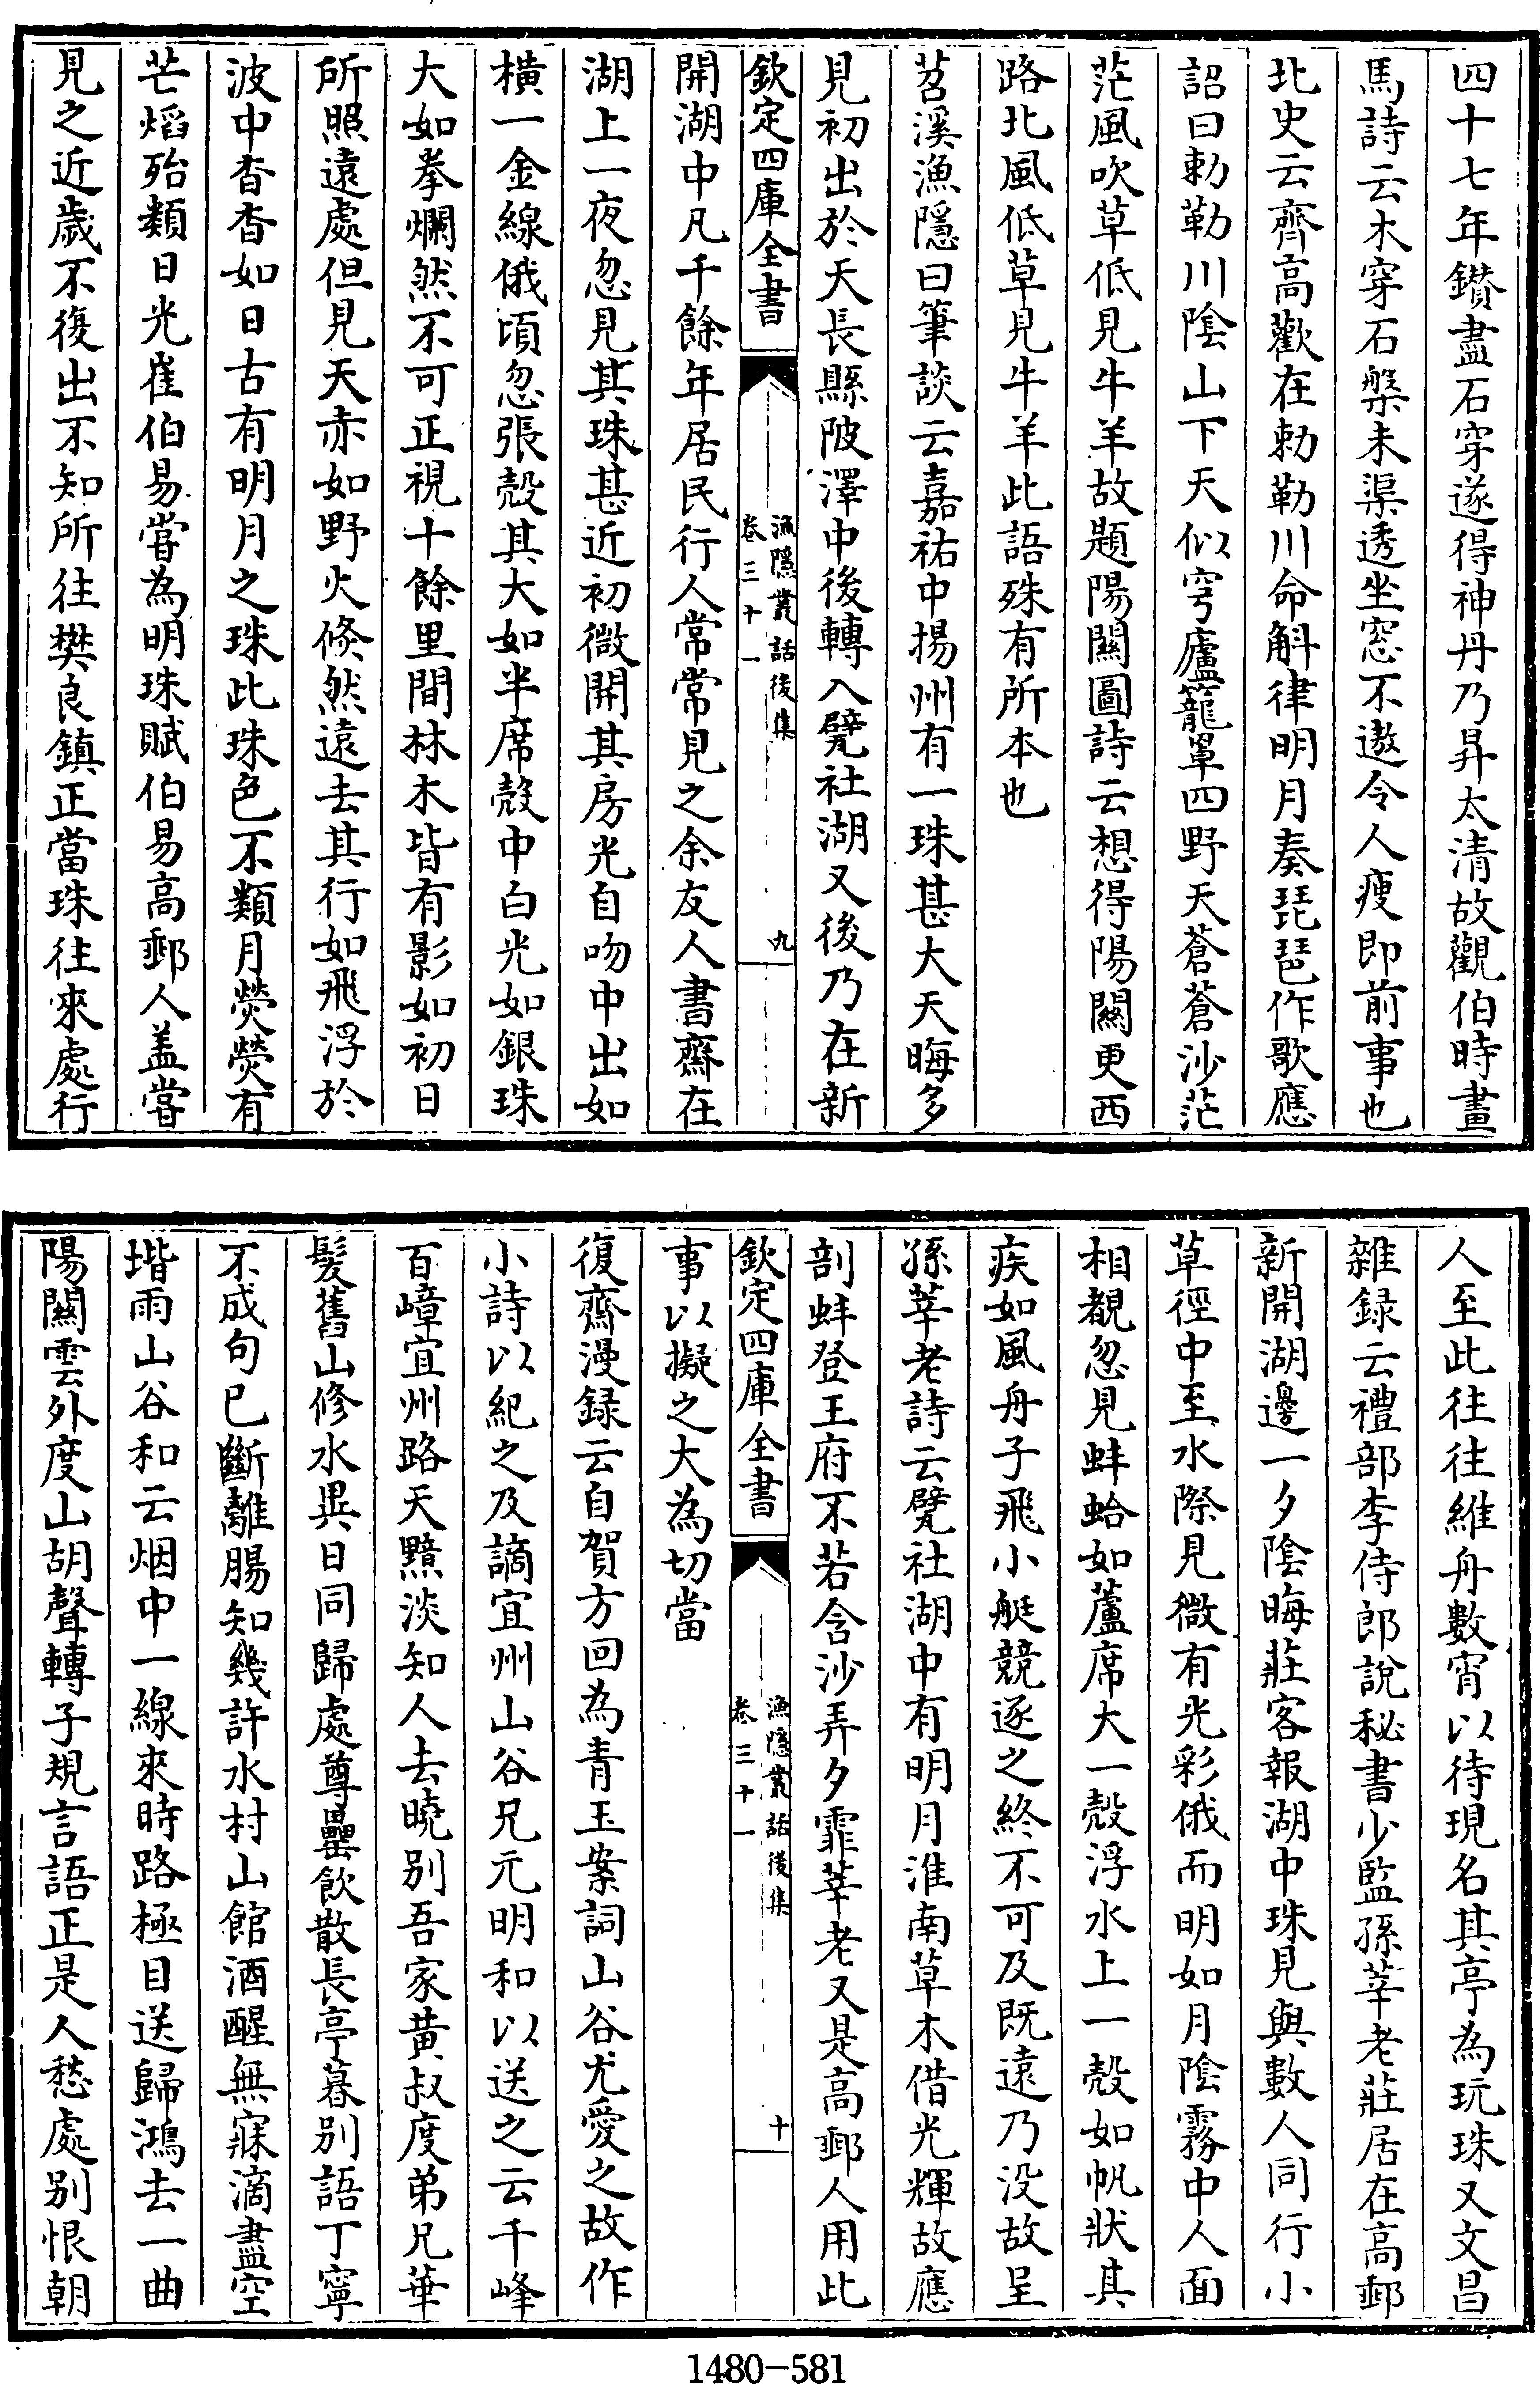 四十七年鑚盡石穿遂得神丹乃昇太清故觀伯時畫
馬詩云木穿石槃未渠透坐窓不遨令人瘦即前事也
北史云齊高歡在勅勒川命斛律明月奏琵琶作歌應
詔曰勅勒川隂山下天似穹廬籠罩四野天蒼蒼沙茫
茫風吹草低見牛羊故題陽闗圖詩云想得陽闗更西
路北風低草見牛羊此語殊有所本也
苕溪漁隱曰筆談云嘉祐中揚州有一珠甚大天晦多
見初出於天長縣陂澤中後轉入甓社湖又後乃在新
欽定四庫全書
漁隱叢話後集
卷三十一
九
開湖中凡千餘年居民行人常常見之余友人書齋在
湖上一夜忽見其珠甚近初微開其房光自吻中出如
橫一金線俄頃忽張殻其大如半席殻中白光如銀珠
大如拳爛然不可正視十餘里間林木皆有影如初日
所照遠處但見天赤如野火倏然遠去其行如飛浮於
波中杳杳如日古有明月之珠此珠色不類月熒熒有
芒熖殆類日光崔伯易嘗為明珠賦伯易高郵人盖嘗
見之近歳不復出不知所往樊良鎮正當珠往來處行
人至此往往維舟數宵以待現名其亭為玩珠又文昌
雜録云禮部李侍郎說秘書少監孫莘老莊居在高郵
新開湖邊一夕隂晦莊客報湖中珠見與數人同行小
草徑中至水際見微有光彩俄而明如月隂霧中人面
相覩忽見蚌蛤如蘆席大一殻浮水上一殻如帆狀其
疾如風舟子飛小艇競逐之終不可及既遠乃没故呈
孫莘老詩云甓社湖中有明月淮南草木借光輝故應
剖蚌登王府不若含沙弄夕霏莘老又是高郵人用此
欽定四庫全書
漁隱叢話後集
卷三十一
十
事以擬之大為切當
復齋漫録云自賀方回為青玉案詞山谷尤愛之故作
小詩以紀之及謫宜州山谷兄元明和以送之云千峰
百嶂宜州路天黯淡知人去曉别吾家黄叔度弟兄華
髮舊山修水異日同歸處尊罍飲散長亭暮别語丁寧
不成句已斷離腸知幾許水村山館酒醒無寐滴盡空
堦雨山谷和云烟中一線來時路極目送歸鴻去一曲
陽闗雲外度山胡聲轉子規言語正是人愁處别恨朝
1480-581